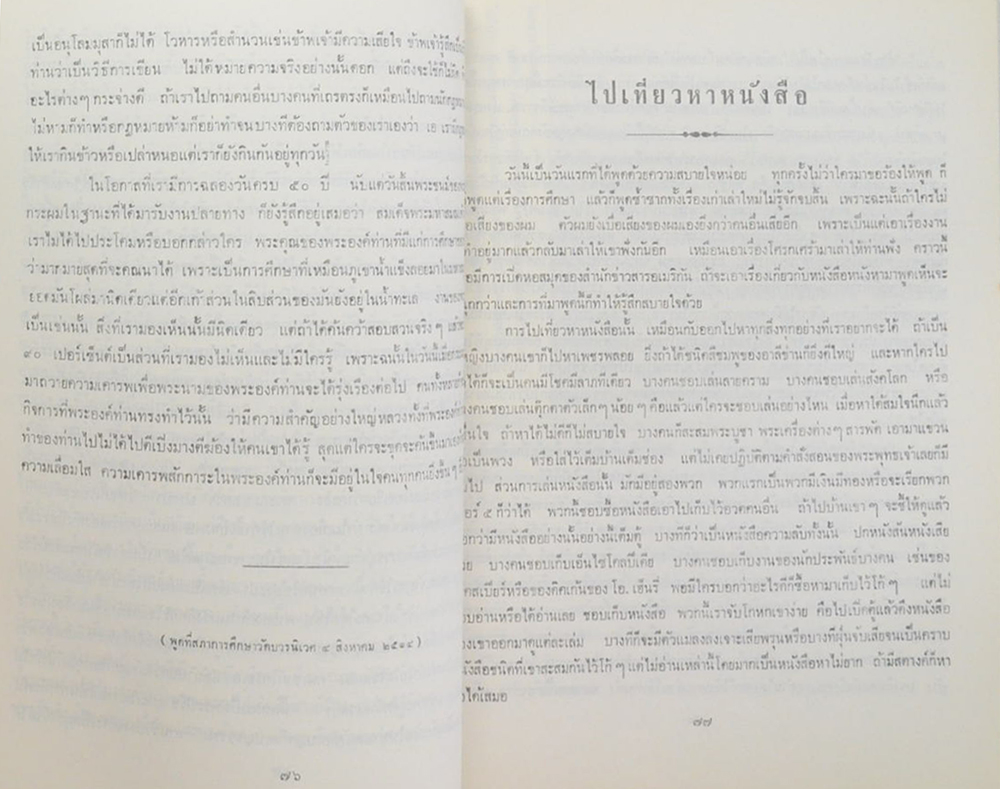 เป็นอนุโลมมุสาก็ไม่ได้ โวหารหรือสำนวนเช่นข้าพเจ้ามีความเสียใจ ข้าพเจ้ารู้สึก
ท่านว่าเป็นวิธีการเขียน ไม่ได้หมายความจริงอย่างนั้นดอก แต่ถึงจะใช้ก็ไม่ผิด
อะไรต่างๆ กระจ่างดี ถ้าเราไปถามคนอื่นบางคนที่เถรตรงก็เหมือนไปถามนักกฎหมาย
ไม่ห้ามก็ทำหรือกฎหมายห้ามก็อย่าทำจน บางทีต้องถามตัวของเราเองว่า เอ เรา
ให้เรากินข้าวหรือเปล่าหนอแต่เราก็ยังกินกันอยู่ทุกวัน
ในโอกาสที่เรามีการฉลองวันครบ ๕๐ ปี นับแต่วันสิ้นพระชนม์ของ
กระผมในฐานะที่ได้มารับงานปลายทาง ก็ยังรู้สึกอยู่เสมอว่า สมเด็จพระมหาสมณ
เราไม่ได้ไปประโคมหรือบอกกล่าวใคร พระคุณของพระองค์ท่านที่มีแก่การศึกษา
ว่ามากมายสุดที่จะคณนาได้ เพราะเป็นการศึกษาที่เหมือนภูเขาน้ำแข็งลอยมาใน
ยอดมันโผล่มานิดเดียวแต่อีกเก้าส่วนในสิบส่วนของมันยังอยู่ในน้ำทะเล งานของ
เป็นเช่นนั้น สิ่งที่เรามองเห็นนั้นมีนิดเดียว แต่ถ้าได้ค้นคว้าสอบสวนจริงๆ แล้ว
๙๐ เปอร์เซ็นต์เป็นส่วนที่เรามองไม่เห็นและไม่มีใครรู้ เพราะฉนั้นในวันนี้เมื่อ
มาถวายความเคารพเพื่อพระนามของพระองค์ท่านจะได้รุ่งเรืองต่อไป คนทั้งหลาย
กิจการที่พระองค์ท่านทรงทำไว้นั้น ว่ามีความสำคัญอย่างใหญ่หลวงทั้งที่พระองค์
ทำของท่านไปไม่ได้ไปตีเปิ่งมางตีฆ้องให้คนเขาได้รู้ สุดแต่ใครจะขุดจะค้นขึ้นมา
ความเลื่อมใส ความเคารพสักการะในพระองค์ท่านก็จะมีอยู่ในใจคนทุกคนยิ่งขึ้นๆ
( พูดที่สภาการศึกษาวัดบวรนิเวศ ๔ สิงหาคม ๒๕๑๔ )
๗๖
ไปเที่ยวหาหนังสือ
วันนี้เป็นวันแรกที่ได้พูดด้วยความสบายใจหน่อย ทุกครั้งไม่ว่าใครมาขอร้องให้พูด ก็
พูดแต่เรื่องการศึกษา แล้วก็พูดซ้ำซากทั้งเรื่องเก่าเล่าใหม่ไม่รู้จักจบสิ้น เพราะฉะนั้นถ้าใครไม่
เสียงของผม ตัวผมยังเบื่อเสียงของผมเองยิ่งกว่าคนอื่นเสียอีก เพราะเป็นแต่เอาเรื่องงาน
อยู่มากแล้วกลับมาเล่าให้เขาฟังกันอีก เหมือนเอาเรื่องโครกคร้ามาเล่าให้ท่านฟัง คราวนี้
มีการเปิดหอสมุดของสำนักข่าวสารอเมริกัน ถ้าจะเอาเรื่องเกี่ยวกับหนังสือหนังหามาพูดเห็นจะ
กว่าและการที่มาพูดนี้ก็ทำให้รู้สึกสบายใจด้วย
การไปเที่ยวหาหนังสือนั้น เหมือนกับออกไปหาทุกสิ่งทุกอย่างที่เราอยากจะได้ ถ้าเป็น
หญิงบางคนเขาก็ไปหาเพชรพลอย ยิ่งถ้าได้ชนิดสีชมพูของอาลีข่านก็ยิ่งดีใหญ่ และหากใครไป
ได้ก็จะเป็นคนมีโชคมีลาภทีเดียว บางคนชอบเล่นลายคราม บางคนชอบเล่นสังคโลก หรือ
บางคนชอบเล่นตุ๊กตาตัวเล็กๆ น้อยๆ คือแล้วแต่ใครจะชอบเล่นอย่างไหน เมื่อหาได้สมใจนึกแล้ว
ชื่นใจ ถ้าหาได้ไม่ดีก็ไม่สบายใจ บางคนก็สะสมพระบูชา พระเครื่องต่างๆ สารพัด เอามาแขวน
เป็นพวง หรือใส่ไว้เต็มบ้านเต็มช่อง แต่ไม่เคยปฏิบัติตามคำสั่งสอนของพระพุทธเจ้าเลยก็มี
ไป ส่วนการเล่นหนังสือนั้น มักมีอยู่สองพวก พวกแรกเป็นพวกมีเงินมีทองหรือจะเรียกพวก
เบอร์ ๕ ก็ว่าได้ พวกนี้ชอบซื้อหนังสือเอาไปเก็บไว้อวดคนอื่น ถ้าไปบ้านเขาๆ จะชี้ให้ดูแล้ว
บอกว่ามีหนังสืออย่างนั้นอย่างนี้เต็มตู้ บางทีก็ว่าเป็นหนังสือความลับทั้งนั้น ปกหนังสันหนังเสีย
ด้วย บางคนชอบเก็บเอ็นไซโคลปีเดีย บางคนชอบเก็บงานของนักประพันธ์บางคน เช่นของ
เชคสเปียร์หรือของดิคเก้นของ โอ. เฮ็นรี่ พอมีใครบอกว่าอะไรดีก็ซื้อหามาเก็บไว้โก้ๆ แต่ไม่
ชอบอ่านหรือได้อ่านเลย ชอบเก็บหนังสือ พวกนี้เราจับโกหกเขาง่าย คือไปเปิดตู้แล้วดึงหนังสือ
ของเขาออกมาดูแต่ละเล่ม บางทีก็จะมีตัวแมลงลงเจาะเสียพรุนหรือบางทีฝุ่นจับเสียจนเป็นคราบ
หนังสือชนิดที่เขาสะสมกันไว้โก้ๆ แต่ไม่อ่านเหล่านี้โดยมากเป็นหนังสือหาไม่ยาก ถ้ามีสตางค์ก็หา
ได้เสมอ
๗๗